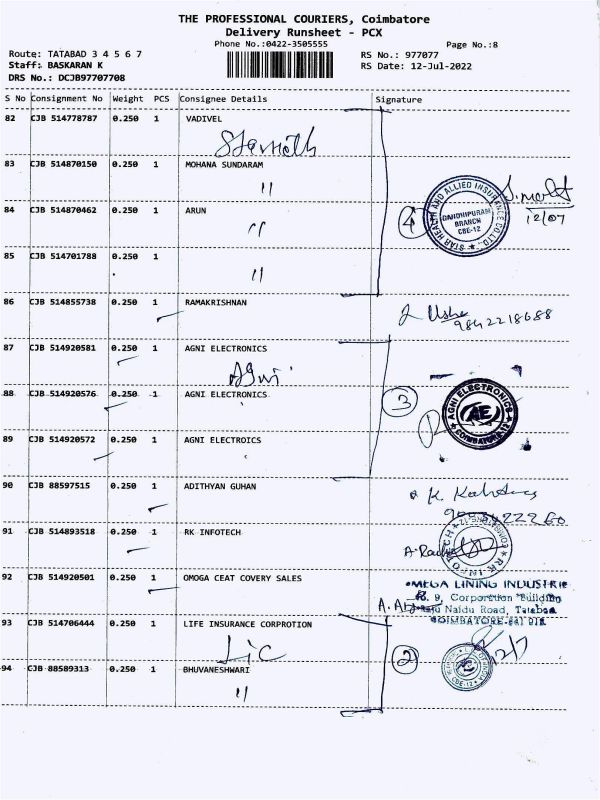 THE PROFESSIONAL COURIERS, Coimbatore
Delivery Runsheet - PCX
Phone No.:0422-3505555 Page No.:8
Route: TATABAD 3 4 5 6 7 RS No.: 977077
Staff: BASKARAN K RS Date: 12-Jul-2022
DRS No.: DCJB97707708
S No Consignment No Weight PCS Consignee Details Signature
82 CJB 514778787 0.250 1 VADIVEL
83 CJB 514870150 0.250 1 MOHANA SUNDARAM
"
STAR HEALTH AND ALLIED INSURANCE CO.LTD.,
GANDHIPURAM
BRANCH
CBE-12
12/07
84 CJB 514870462 0.250 1 ARUN
"
4
85 CJB 514701788 0.250 1
"
86 CJB 514855738 0.250 1 RAMAKRISHNAN
Usha
9842218688
87 CJB 514920581 0.250 1 AGNI ELECTRONICS
Agni
88 CJB 514920576 0.250 1 AGNI ELECTRONICS
3
AGNI ELECTRONICS
AE
COIMBATORE-12
89 CJB 514920572 0.250 1 AGNI ELECTROICS
90 CJB 88597515 0.250 1 ADITHYAN GUHAN
K.
91 CJB 514893518 0.250 1 RK INFOTECH
RK INFOTECH
92 CJB 514920501 0.250 1 OMOGA CEAT COVERY SALES
OMEGA LINING INDUSTRIE
9, Corporation Building
Naidu Road, Tatabad
COIMBATORE-641 012
93 CJB 514706444 0.250 1 LIFE INSURANCE CORPROTION
Lic
2
CBE-12
94 CJB 88589313 0.250 1 BHUVANESHWARI
"